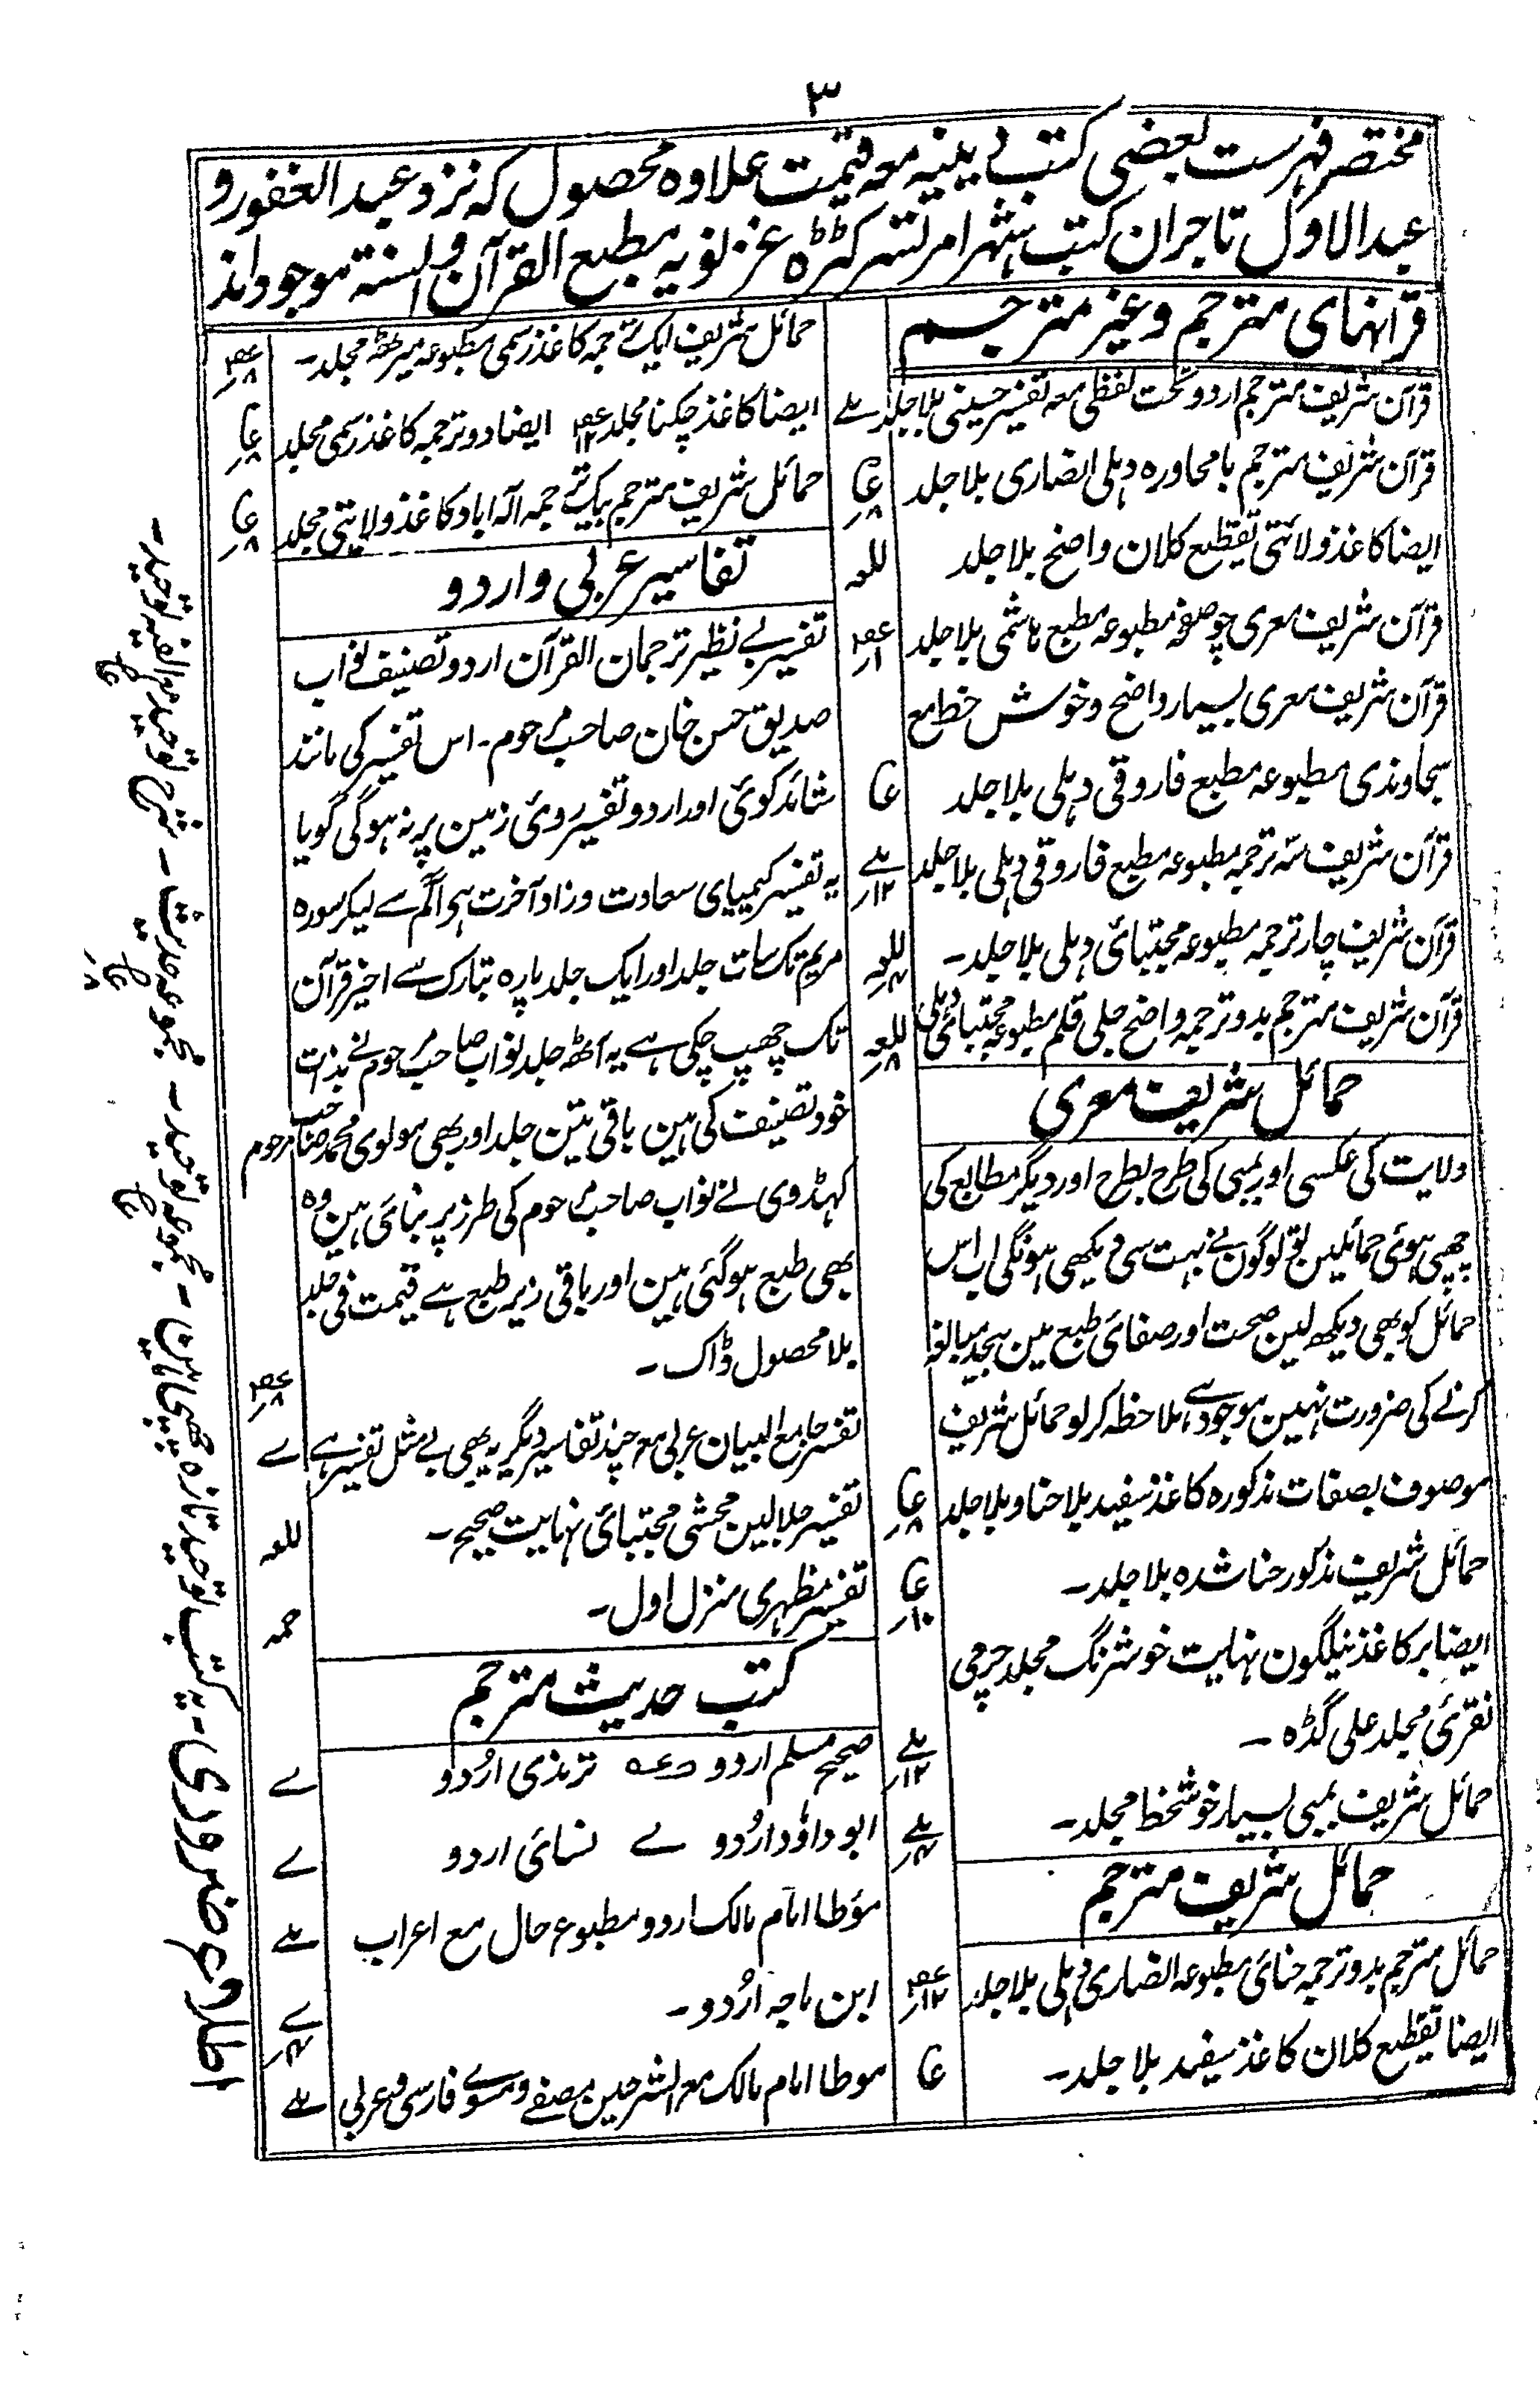 ۳
مختصر فہرست بعضی کتب دینیہ معہ قیمت علاوہ محصول کہ نزد عبد الغفور و
عبد الاول تاجران کتب شہر امرتسر کٹڑہ غزنویہ مطبع القرآن و السنۃ موجود اند
قرآنہای مترجم و غیر مترجم
قرآن شریف مترجم اردو تحت لفظی معہ تفسیر حسینی بلا جلد
قرآن شریف مترجم با محاورہ دہلی انصاری بلا جلد
ایضا کاغذ ولائتی تقطیع کلان واضح بلا جلد
قرآن شریف معری چو صفحہ مطبوعہ مطبع ہاشمی بلا جلد
قرآن شریف معری بسیار واضح و خوش خط مع
سجاوندی مطبوعہ مطبع فاروقی دہلی بلا جلد
قرآن شریف سہ ترجمہ مطبوعہ مطبع فاروقی دہلی بلا جلد ۱۲
قرآن شریف چار ترجمہ مطبوعہ مجتبائی دہلی بلا جلد۔
قرآن شریف مترجم بدو ترجمہ واضح جلی قلم مطبوعہ مجتبائی دہلی
حمائل شریف معری
ولایت کی عکسی اور بمبی کی طرح بطرح اور دیگر مطابع کی
چھپی ہوئی حمائلین تو لوگون نے بہت سی دیکھی ہونگی اب اس
حمائل کو بھی دیکھ لین صحت اور صفائی طبع مین بیحد مبالغہ
کرنے کی ضرورت نہین موجود ہے ملاحظہ کر لو حمائل شریف
موصوف بصفات مذکورہ کاغذ سفید بلا حنا و بلا جلد
حمائل شریف مذکور حنا شدہ بلا جلد۔
ایضا بر کاغذ نیلگون نہایت خوشرنگ مجلد چرمی
نقرئی مجلد علی گڈہ ۔ ۱۲
حمائل شریف بمبی بسیار خوشخط مجلد۔
حمائل شریف مترجم
حمائل مترجم بدو ترجمہ حنائی مطبوعہ انصاری دہلی بلا جلد ۱۲
ایضا تقطیع کلان کاغذ سفید بلا جلد۔
حمائل شریف ایک ترجمہ کاغذ رسمی مطبوعہ میرٹھ مجلد۔ ۸
ایضا کاغذ چکنا مجلد ۱۲ ایضا دو ترجمہ کاغذ رسمی مجلد ۸
حمائل شریف مترجم بیک ترجمہ الہ اباد کاغذ ولایتی مجلد ۸
تفاسیر عربی و اردو
تفسیر بے نظیر ترجمان القرآن اردو تصنیف نواب
صدیق حسن خان صاحب مرحوم۔ اس تفسیر کی مانند
شائد کوئی اور اردو تفسیر روئ زمین پر نہ ہوگی گویا
یہ تفسیر کیمیای سعادت و زاد آخرت ہی الٓم سے لیکر سورہ
مریم تک سات جلد اور ایک جلد پارہ تبارک سے اخیر قرآن
تک چھپ چکی ہے یہ آٹھ جلد نواب صاحب مرحوم نے بذات
خود تصنیف کی ہین باقی تین جلد اور بھی مولوی محمد صاحب مرحوم
کہنڈوی نے نواب صاحب مرحوم کی طرز پر بنائی ہین وہ
بھی طبع ہوگئی ہین اور باقی زیر طبع ہے قیمت فی جلد
بلا محصول ڈاک ۔ ۸
تفسیر جامع البیان عربی معہ چند تفاسیر دیگر یہ بھی بے مثل تفسیر ہے
تفسیر جلالین محشی مجتبائی نہایت صحیح۔
تفسیر مظہری منزل اول۔
کتب حدیث مترجم
صحیح مسلم اردو ترمذی اُردو
ابو داؤد اُردو نسائی اردو
مؤطا امام مالک اردو مطبوعہ حال مع اعراب
ابن ماجہ اُردو۔
موطا امام مالک معہ الشرحین مصفے و مسوے فارسی و عربی
اطلاع ضروری۔ یہ کتب توحید تازہ چھپی ہین ۔ مجموعہ توحید ۔ مجموعہ حدیث ۔